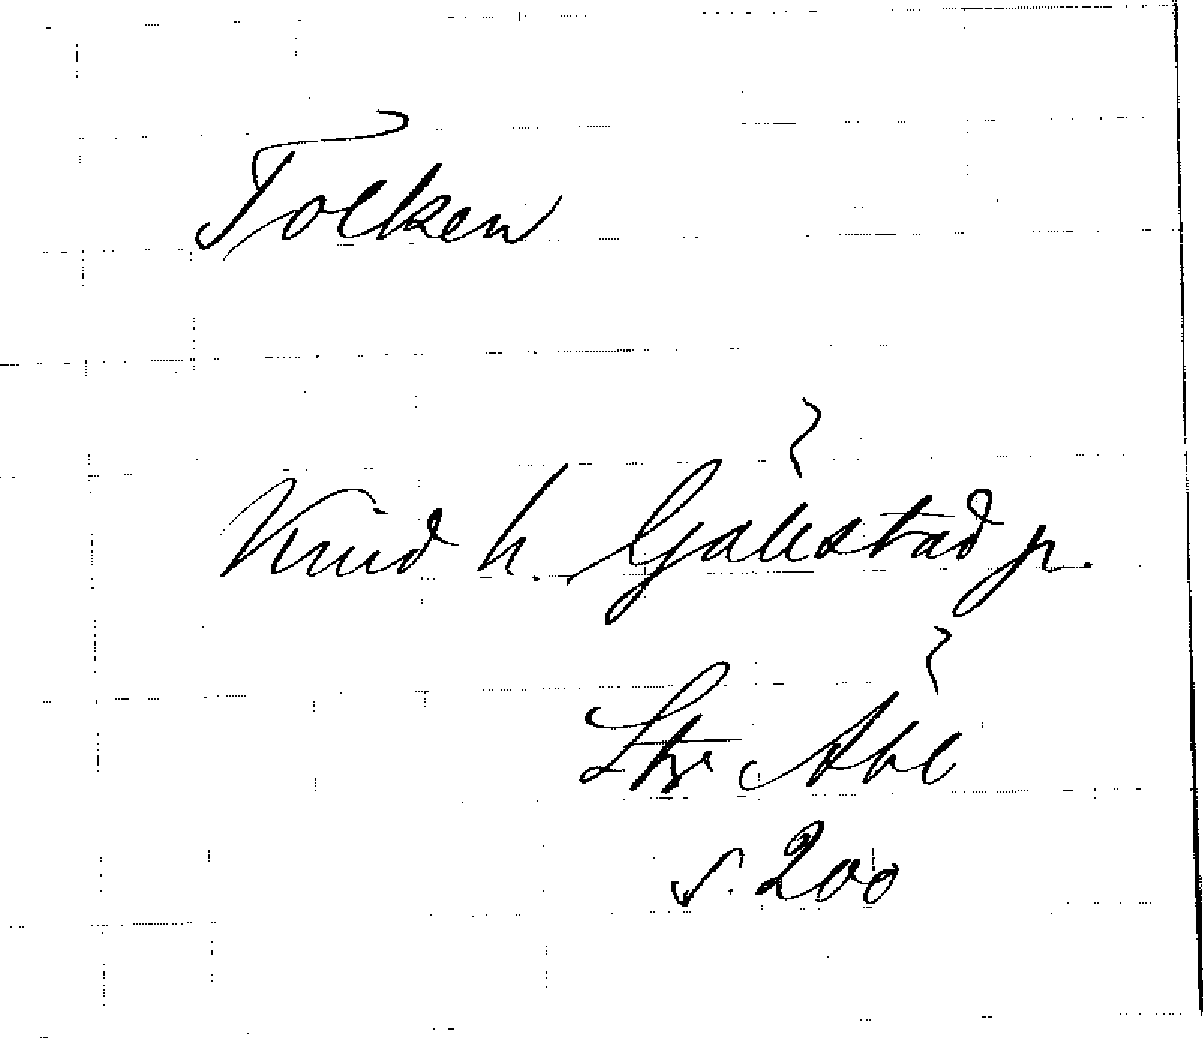 Tolken
Knud h. Gjälstad p.
Str. Abl
s. 200